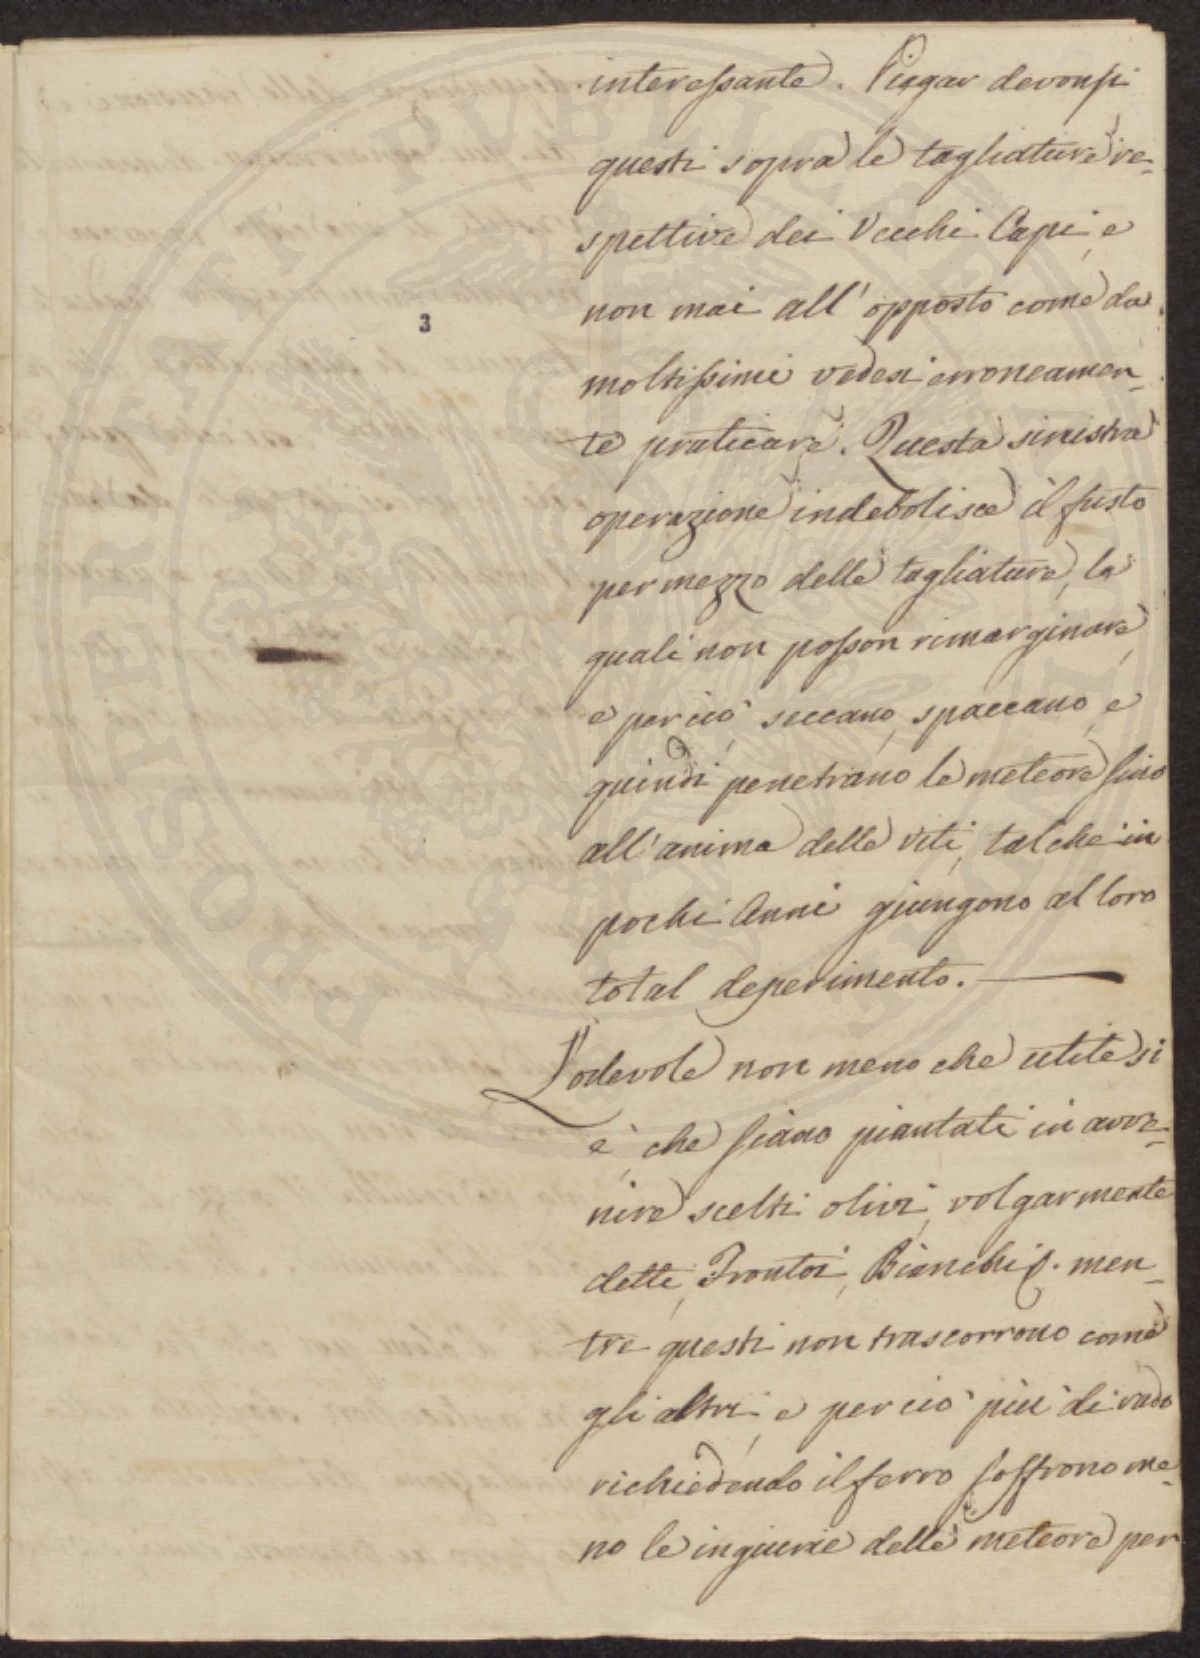 interessante. Piggar devonsi
questi sopra le tagliature re-
spettive dei Vecchi Capi, e
non mai all'opposto come da
moltissimi vedesi erroneamen-
te praticare. Questa sinistra
operazione indebolisce il fusto
per mezzo delle tagliature, le
quali non posson rimarginare,
e perciò seccano, spaccano, e
quindi penetrano le meteore sino
all'anima delle viti, talche in
pochi Anni giungono al loro
total deperimento. —
Lodevole non meno che utile si
è, che siano piantati in avve-
nire scelti olivi, volgarmente
dette, Frontoi, Bianchi p. men-
tre questi non trascorrono come
gli altri, e perciò più di rado
richiedendo il ferro soffrono me-
no le ingiurie delle meteore per
3
PROSPERITATI PUBLICAE